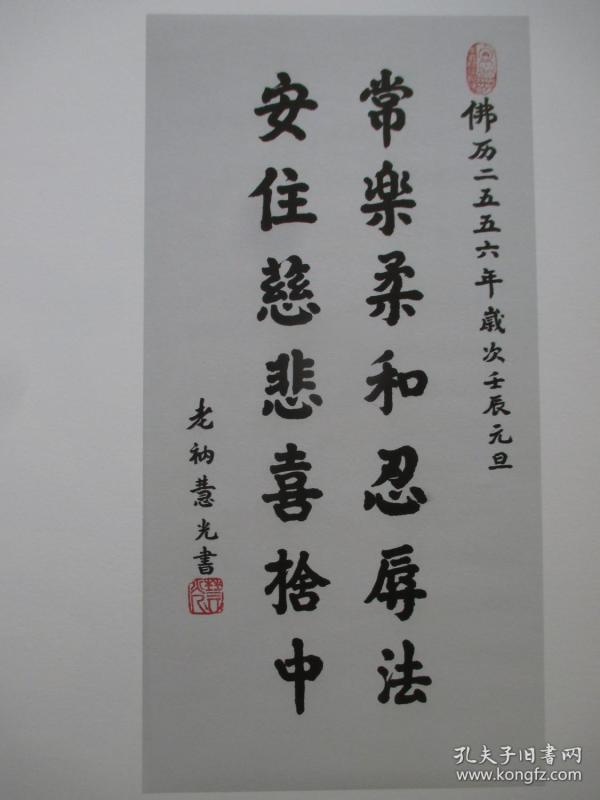 佛历二五五六年歲次壬辰元旦
常樂柔和忍辱法
安住慈悲喜捨中
老衲慧光書
孔夫子旧书网
www.kongfz.com